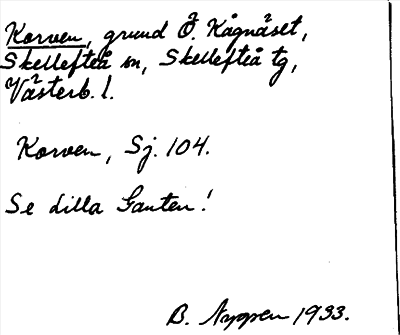 Korven, grund Ö. Kågnäset,
Skellefteå sn, Skellefteå tg,
Västerb. l.
Korven, Sj. 104.
Se Lilla Ganten!
B. Nyppen 1933.